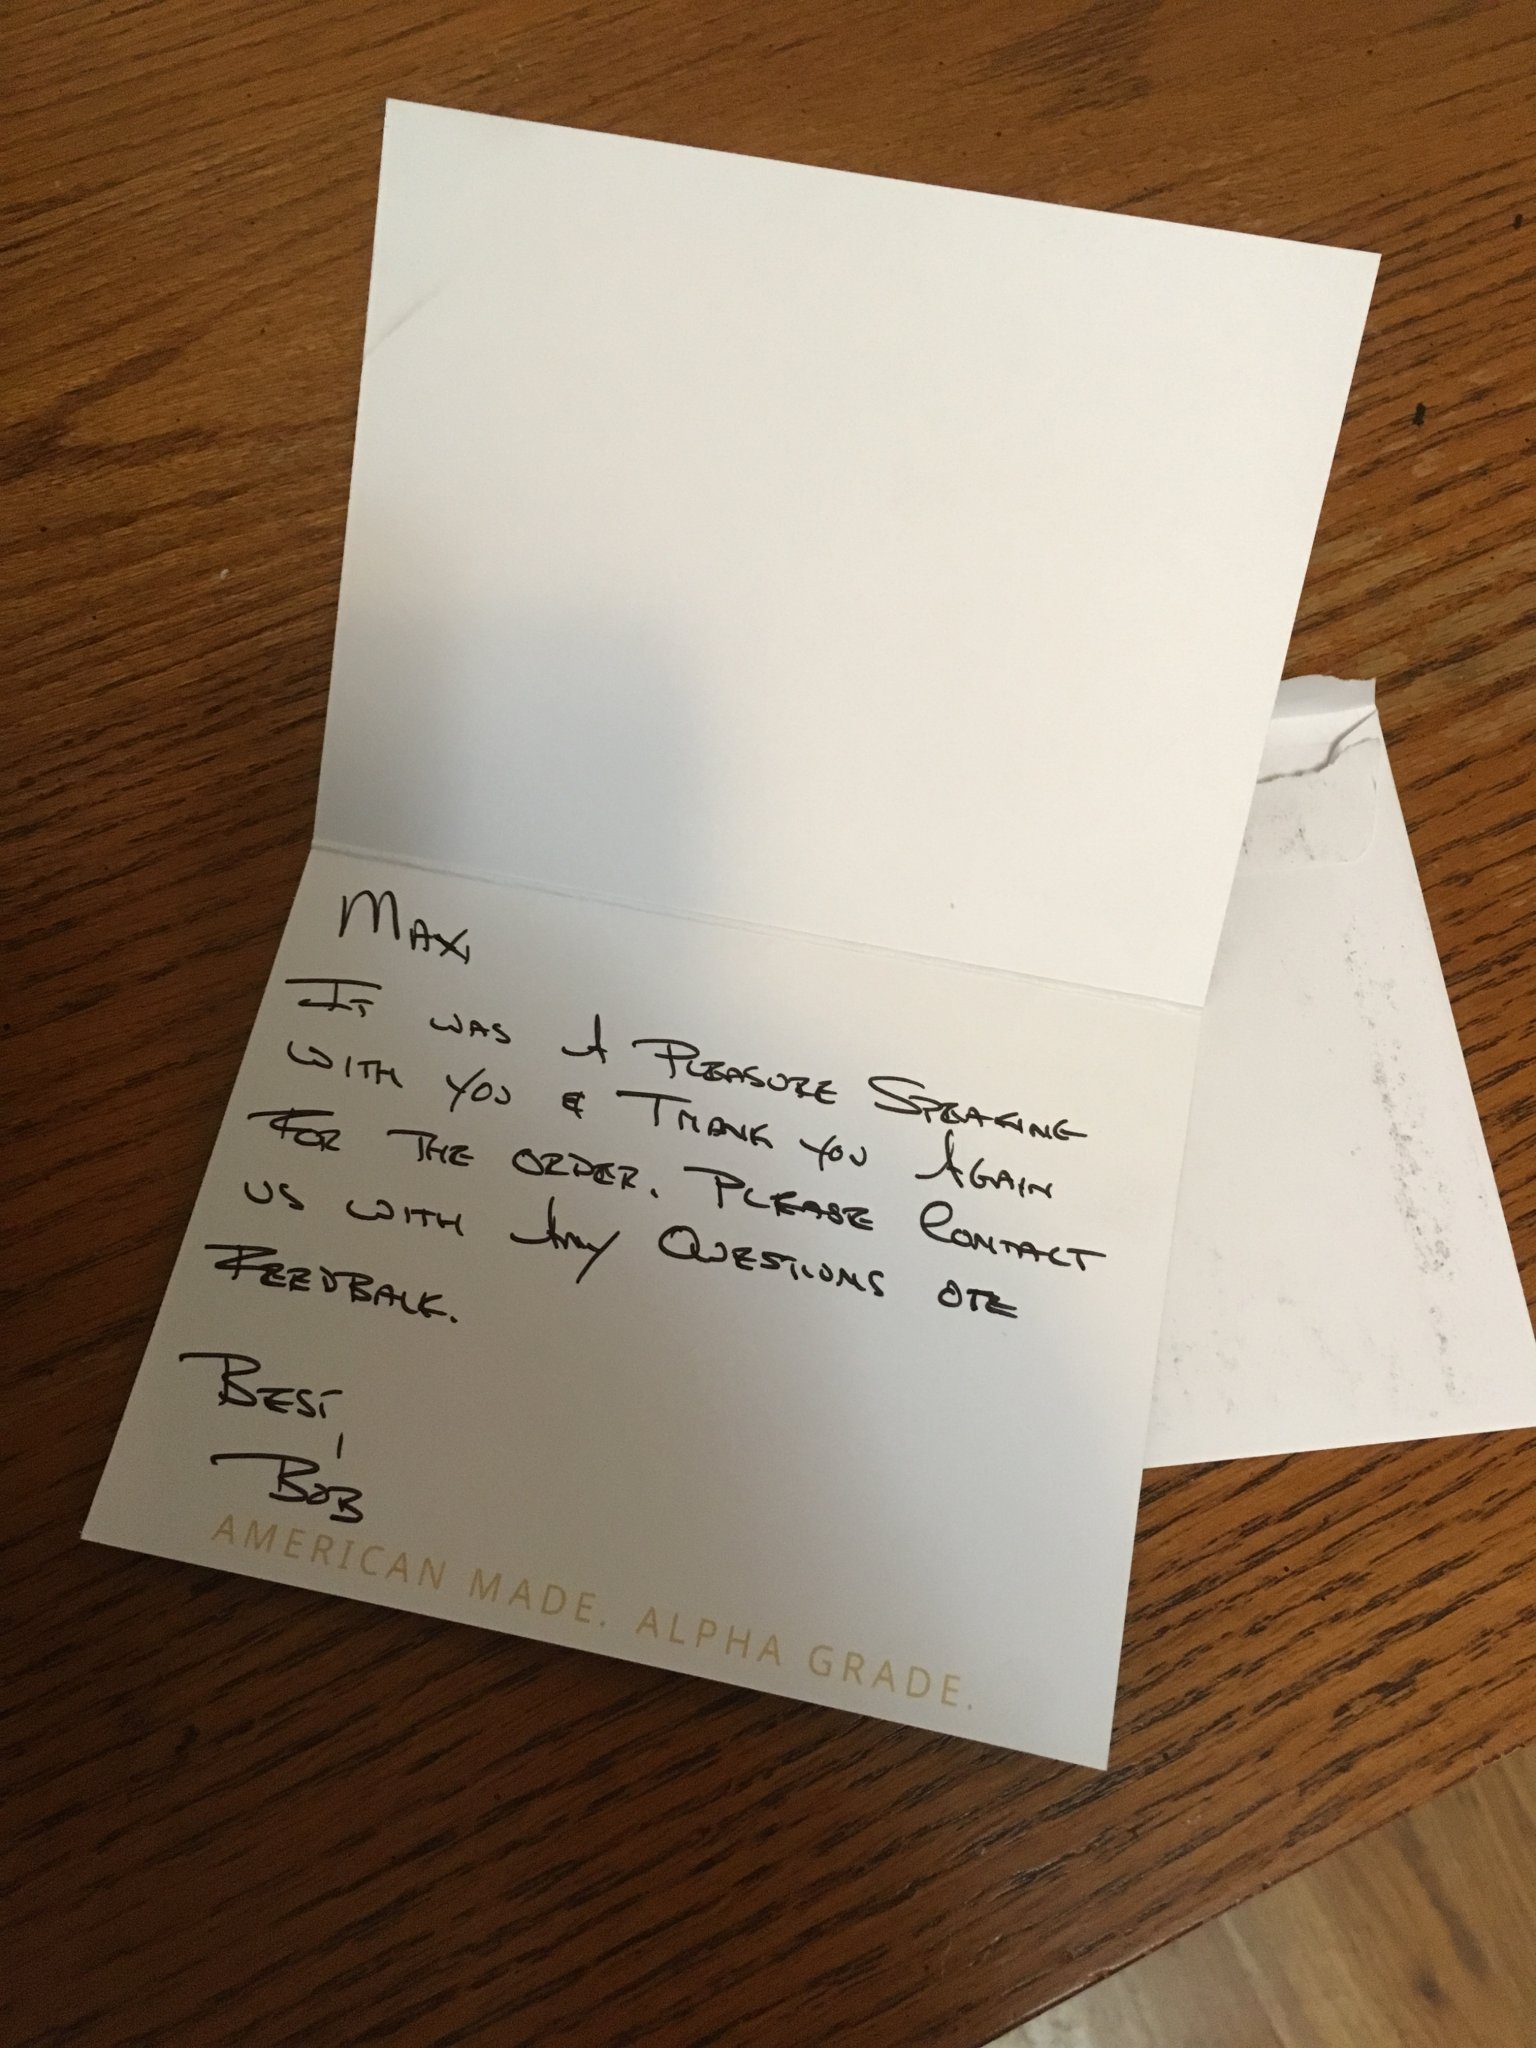 Max,
It was a pleasure speaking
with you & thank you again
for the order. Please contact
us with any questions or
feedback.
Best,
Bob
AMERICAN MADE. ALPHA GRADE.